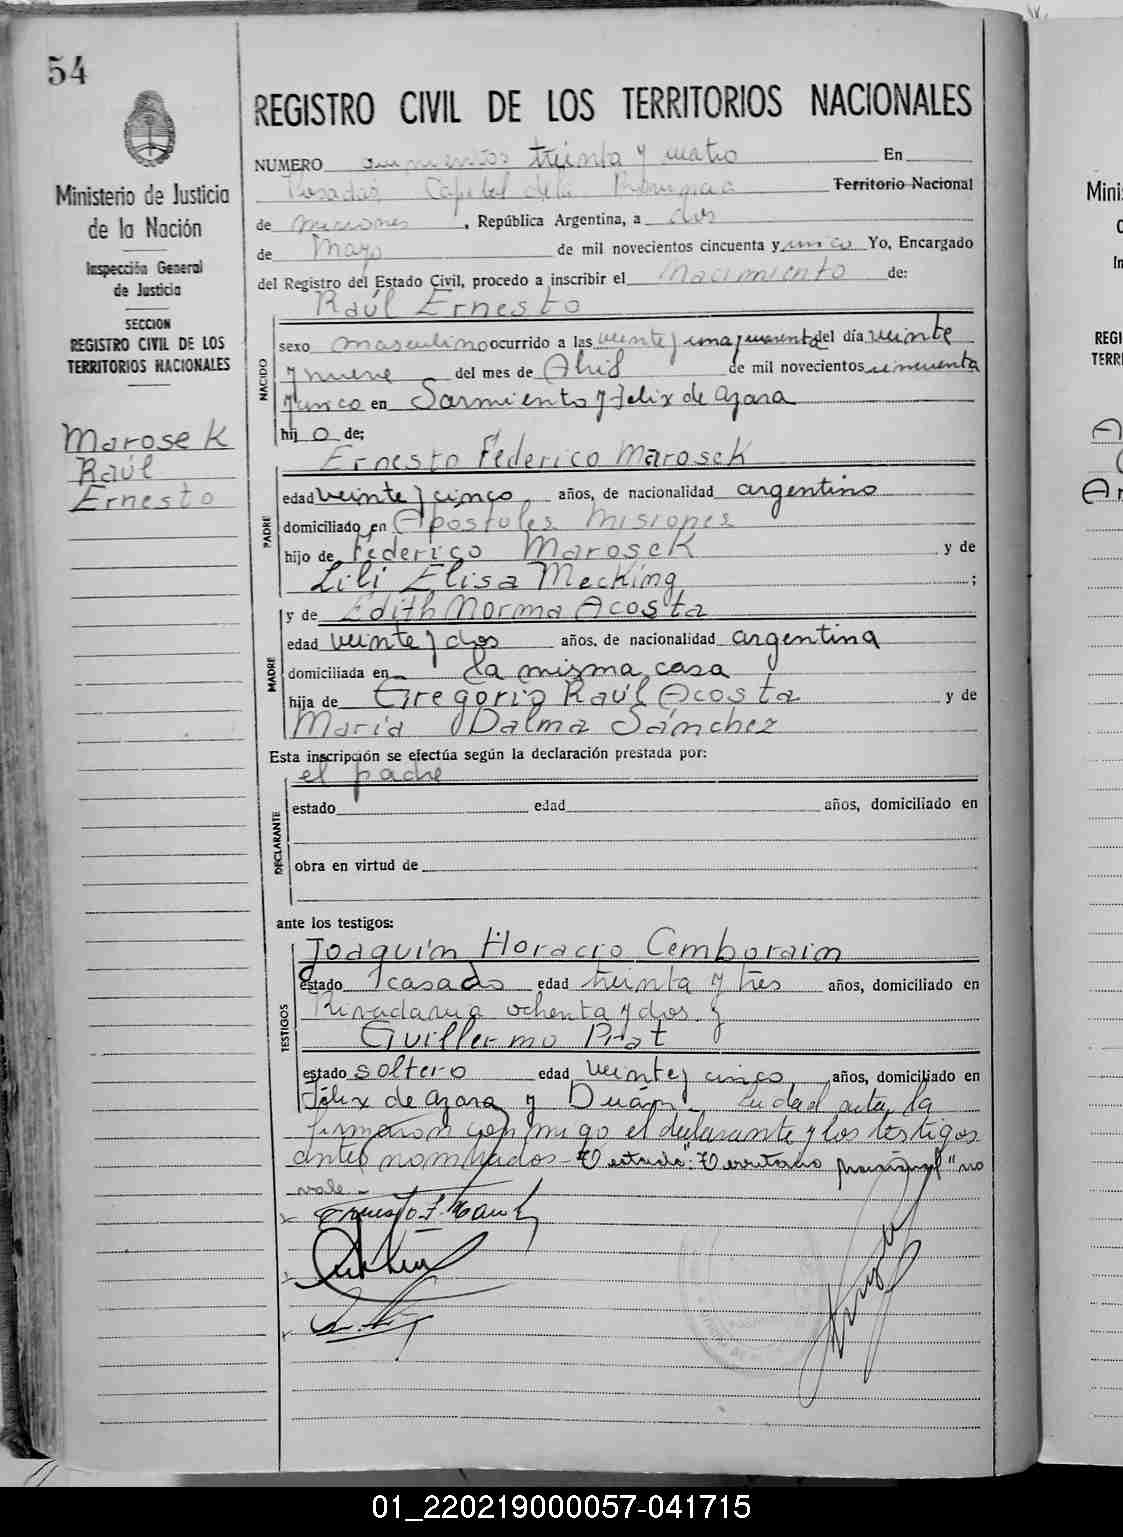 54
Ministerio de Justicia
de la Nación
Inspección General
de Justicia
SECCION
REGISTRO CIVIL DE LOS
TERRITORIOS NACIONALES
Marosek
Raúl
Ernesto
REGISTRO CIVIL DE LOS TERRITORIOS NACIONALES
NUMERO quinientos treinta y cuatro En
Posadas Capital de la Provincia Territorio Nacional
de Misiones, República Argentina, a dos
de Mayo de mil novecientos cincuenta y unico Yo, Encargado
del Registro del Estado Civil, procedo a inscribir el Nacimiento de:
Raúl Ernesto
NACIDO
sexo masculino ocurrido a las veinte y una y cuarenta del día veinte
y nueve del mes de Abril de mil novecientos cincuenta
y unco en Sarmiento y Felix de Azara
hijo de:
Ernesto Federico Marosek
PADRE
edad veinte y cinco años, de nacionalidad argentino
domiciliado en Apóstoles Misiones
hijo de Federico Marosek y de
Lili Elisa Mecking ;
MADRE
y de Edith Norma Acosta
edad veinte y dos años, de nacionalidad argentina
domiciliada en la misma casa
hija de Gregorio Raúl Acosta y de
María Dalma Sánchez
Esta inscripción se efectúa según la declaración prestada por:
el padre
DECLARANTE
estado edad años, domiciliado en
obra en virtud de
ante los testigos:
TESTIGOS
Joaquín Horacio Cemborain
estado casado edad treinta y tres años, domiciliado en
Rivadavia ochenta y dos y
Guillermo Prat
estado soltero edad veinte y cinco años, domiciliado en
Félix de Azara y Leída esta acta, la
firmaron conmigo el declarante y los testigos
antes nominados - Testado: "Territorio nacional" no
vale -
Mini
REGI
TERRI
01_220219000057-041715